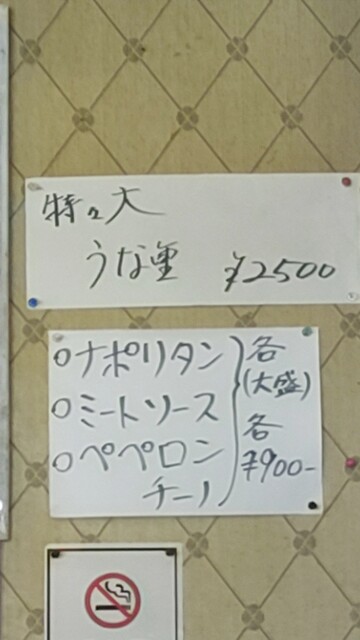 特々大
うな重 ¥2500
○ナポリタン
○ミートソース
○ペペロン
チーノ
各
(大盛)
各
¥900-